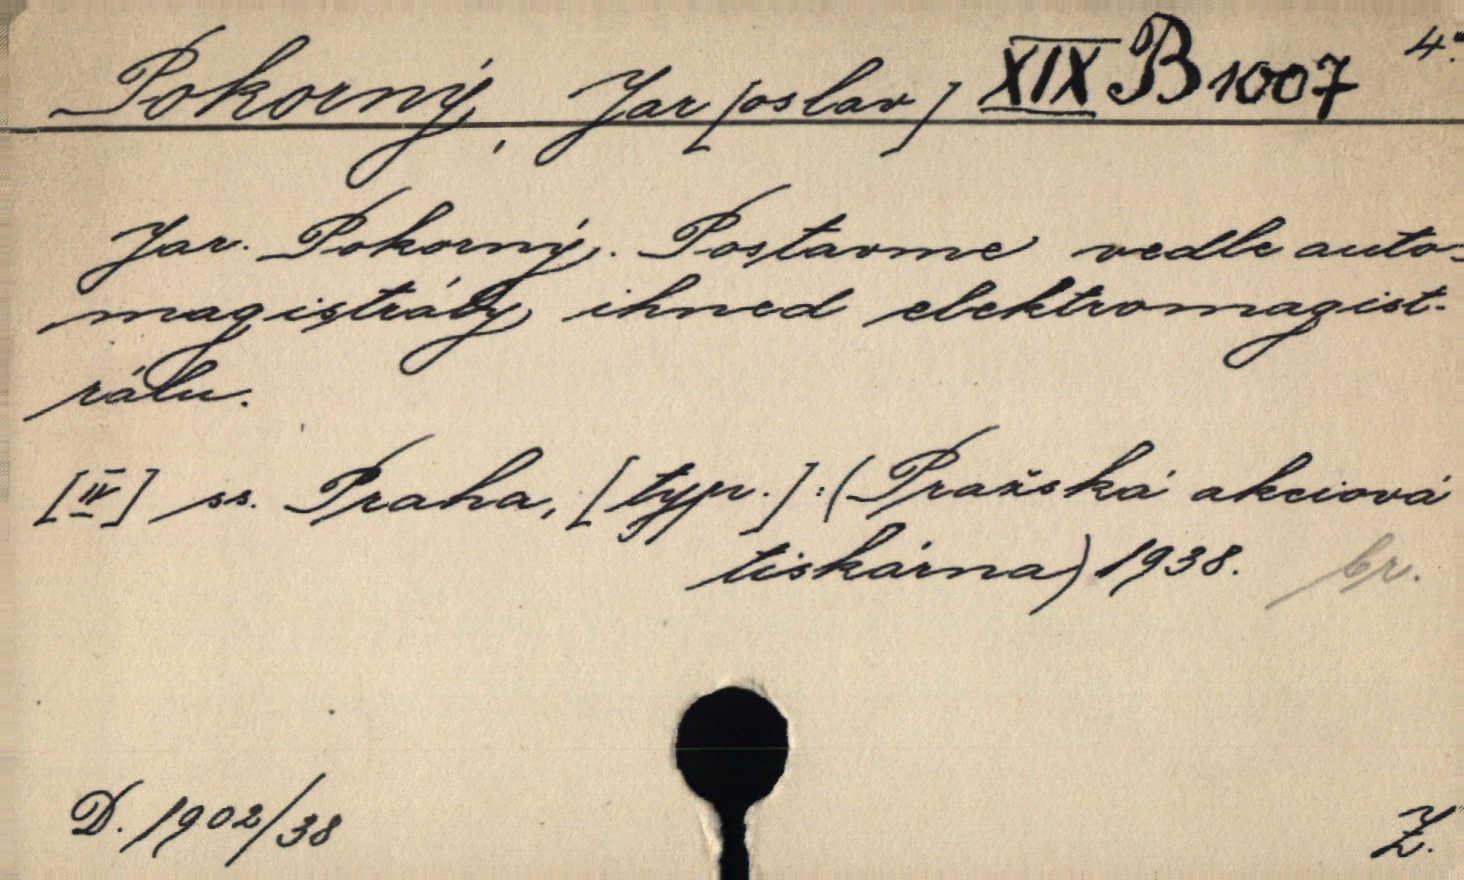 Pokorný, Jar[oslav] XIX B 1007 4°.
Jar. Pokorný. Postavme vedle auto-
magistrály ihned elektromagist-
rálu.
[IV] ss. Praha, [typ.]: (Pražská akciová
tiskárna) 1938. br.
D. 1902/38 Ž.